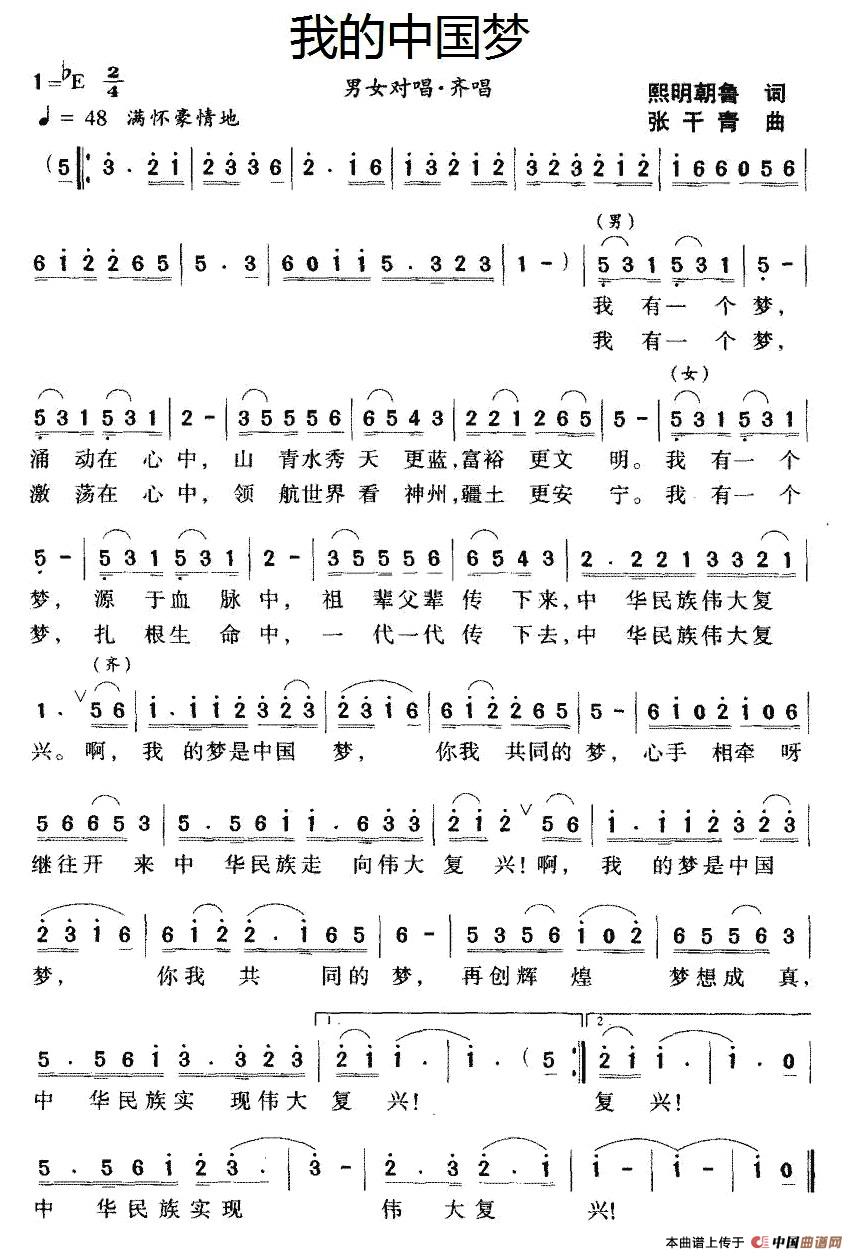 我的中国梦
1=♭E 2/4
男女对唱·齐唱
熙明朝鲁 词
♩=48 满怀豪情地
张干青 曲
(5 ‖: 3 . 2 1 | 2 3 3 6 | 2 . 1 6 | 1 3 2 1 2 | 3 2 3 2 1 2 | 1 6 6 0 5 6 |
(男)
6 1 2 2 6 5 | 5 . 3 | 6 0 1 1 5 . 3 2 3 | 1 - ) | 5 3 1 5 3 1 | 5 - |
我 有一 个 梦,
我 有一 个 梦,
(女)
5 3 1 5 3 1 | 2 - | 3 5 5 5 5 6 | 6 5 4 3 | 2 2 1 2 6 5 | 5 - | 5 3 1 5 3 1 |
涌 动在 心 中, 山 青水秀 天 更蓝,富裕 更文 明。我 有一 个
激 荡在 心 中, 领 航世界 看 神州,疆土 更安 宁。我 有一 个
5 - | 5 3 1 5 3 1 | 2 - | 3 5 5 5 5 6 | 6 5 4 3 | 2 . 2 2 1 3 3 2 1 |
梦, 源 于血 脉 中, 祖 辈父辈 传 下来,中 华民族伟大复
梦, 扎 根生 命 中, 一 代一代 传 下去,中 华民族伟大复
(齐)
1 . ∨ 5 6 | 1 . 1 1 2 3 2 3 | 2 3 1 6 | 6 1 2 2 6 5 | 5 - | 6 1 0 2 1 0 6 |
兴。啊, 我 的梦是中国 梦, 你我 共同的 梦, 心手 相牵 呀
5 6 6 5 3 | 5 . 5 6 1 1 . 6 3 3 | 2 1 2 ∨ 5 6 | 1 . 1 1 2 3 2 3 |
继往开 来 中 华民族走 向伟大 复 兴!啊, 我 的梦是中国
2 3 1 6 | 6 1 2 2 . 1 6 5 | 6 - | 5 3 5 6 1 0 2 | 6 5 5 6 6 3 |
梦, 你我 共 同的 梦, 再创辉 煌 梦想成 真,
1. 2.
5 . 5 6 1 3 . 3 2 3 | 2 1 1 . | 1 . ( 5 :‖ 2 1 1 . | 1 . 0 |
中 华民族实 现伟大 复 兴! 复 兴!
5 . 5 6 1 2 3 . | 3 - | 2 . 2 | 2 . 1 | 1 - | 1 0 ‖
中 华民族实现 伟 大复 兴!
本曲谱上传于 中国曲谱网